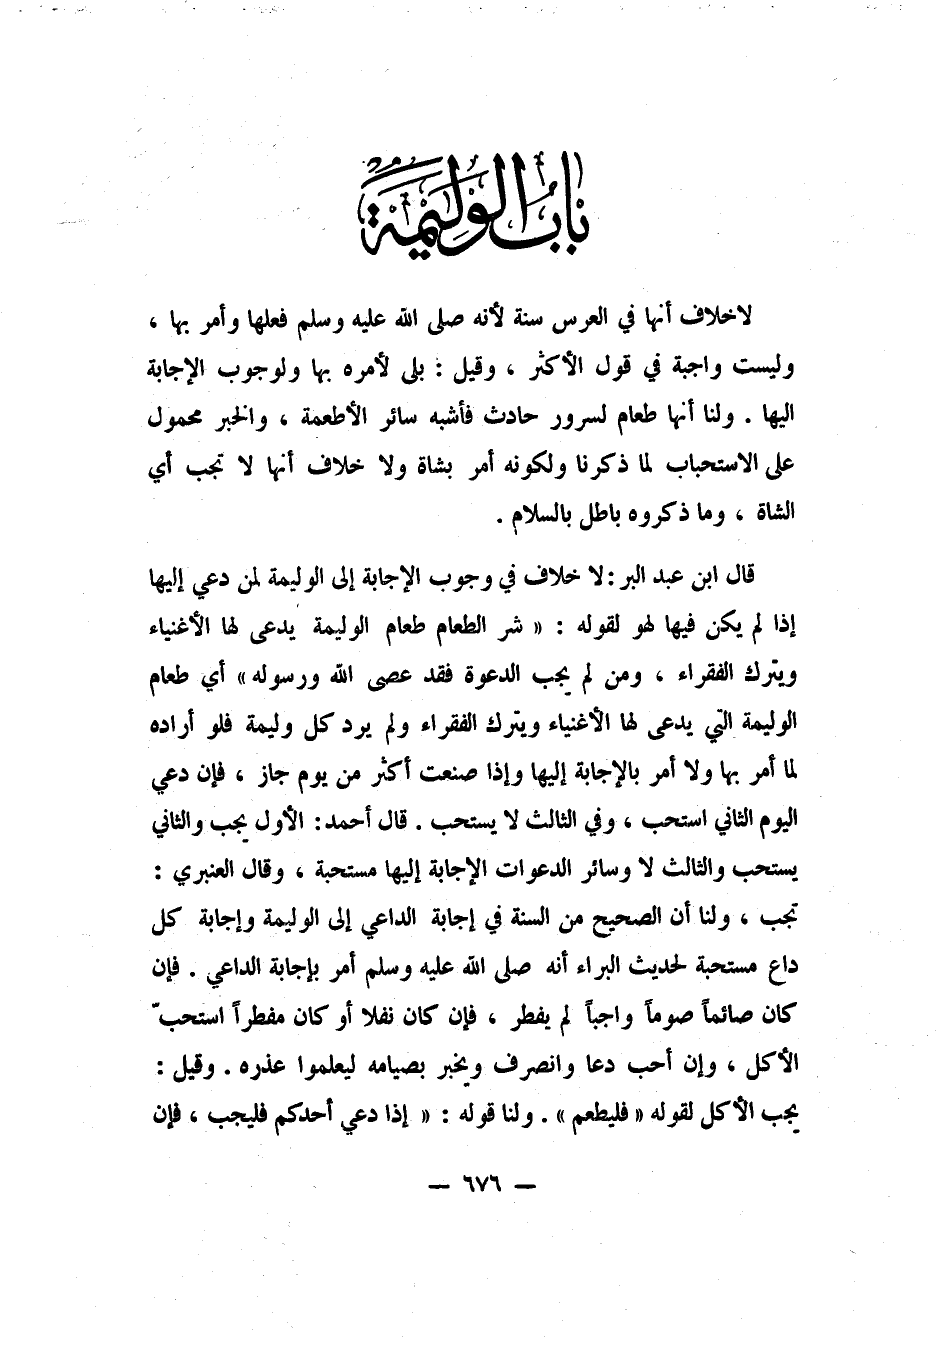 باب الوليمة
لاخلاف أنها في العرس سنة لأنه صلى الله عليه وسلم فعلها وأمر بها ،
وليست واجبة في قول الأكثر ، وقيل : بلى لأمره بها ولوجوب الإجابة
اليها . ولنا أنها طعام لسرور حادث فأشبه سائر الأطعمة ، والخبر محمول
على الاستحباب لما ذكرنا ولكونه أمر بشاة ولا خلاف أنها لا تجب أي
الشاة ، وما ذكروه باطل بالسلام .
قال ابن عبد البر : لا خلاف في وجوب الإجابة إلى الوليمة لمن دعي إليها
إذا لم يكن فيها لهو لقوله : « شر الطعام طعام الوليمة يدعى لها الأغنياء
ويترك الفقراء ، ومن لم يجب الدعوة فقد عصى الله ورسوله » أي طعام
الوليمة التي يدعى لها الأغنياء ويترك الفقراء ولم يرد كل وليمة فلو أراده
لما أمر بها ولا أمر بالإجابة إليها وإذا صنعت أكثر من يوم جاز ، فإن دعي
اليوم الثاني استحب ، وفي الثالث لا يستحب . قال أحمد : الأول يجب والثاني
يستحب والثالث لا وسائر الدعوات الإجابة إليها مستحبة ، وقال العنبري :
تجب ، ولنا أن الصحيح من السنة في إجابة الداعي إلى الوليمة وإجابة كل
داع مستحبة لحديث البراء أنه صلى الله عليه وسلم أمر بإجابة الداعي . فإن
كان صائماً صوماً واجباً لم يفطر ، فإن كان نفلا أو كان مفطراً استحبّ
الأكل ، وإن أحب دعا وانصرف ويخبر بصيامه ليعلموا عذره . وقيل :
يجب الأكل لقوله « فليطعم » . ولنا قوله : « إذا دعي أحدكم فليجب ، فإن
— ٦٧٦ —